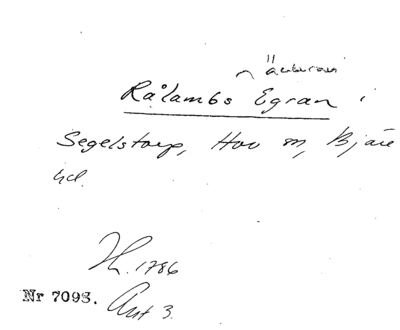 Rålambs Egran i
Segelstorp, Hov sn, Bjäre
hd.
1786
Nr 7093.
Ant 3.